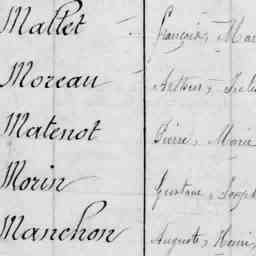 Mallet François, Mar
Moreau Arthur, Jule
Matenot Pierre, Marie
Morin Gustave, Joseph
Manchon Auguste, Henri,